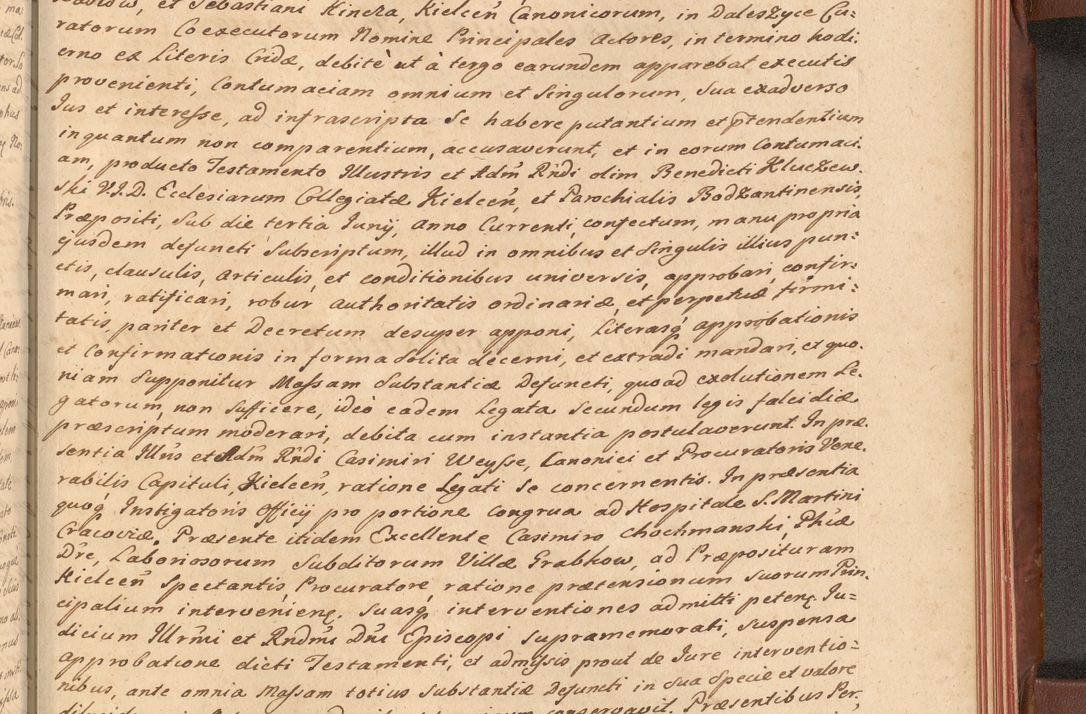 et Sebastiani Kincza, Kielceń Canonicorum, in Daleszyce Cu:
ratorum Coexecutorum Nomine Principales Actores, in termino hodi:
erno ex Literis Cridæ, debitè ut à tergo earundem apparebat executis
provenienti, Contumaciam omnium et Singulorum, Sua exadverso
Jus et interesse, ad infrascripta Se habere putantium et ptendentium
inquantum non comparentium, accusaverunt, et in eorum Contumaci:
am, producto Testamento Illustris et Adm Rńdi olim Benedicti Kluczew:
ski V.J.D. Ecclesiarum Collegiatæ Kielceń, et Parochialis Bodzantinensis,
Præpositi, Sub die tertia Junij, Anno Currenti, confectum, manu propria
ejusdem defuncti Subscriptum, illud in omnibus et Singulis illius pun:
ctis, clausulis, articulis, et conditionibus universis, approbari, confir:
mari, ratificari, robur authoritatis ordinariæ, et perpetuæ firmi:
tatis, pariter et Decretum desuper apponi, Literasq́ approbationis
et Confirmationis in forma Solita decerni, et extradi mandari, et quo:
niam Supponitur Massam Substantiæ Defuncti, quoad exolutionem Le:
gatorum, non Sufficere, ideò eadem Legata Secundum legis falcidiæ
præscriptum moderari, debita cum instantia postulaverunt. In præ:
sentia Illris et Adm Rńdi Casimiri Weysse, Canonici et Procuratoris Vene:
rabilis Capituli, Kielceń, ratione Legati Se concernentis. In præsentia
quoq́ Instigatoris Officij pro portione congrua ad Hospitale S. Martini
Cracoviæ. Præsente itidem Excellente Casimiro Chochmanski, Phiæ
Dre, Laboriosorum Subditorum Villæ Grabkow, ad Præposituram
Kielceń Spectantis, Procuratore, ratione prætensionum Suorum Prin:
cipalium interveniene, Suasq́ interventiones admitti petene, Ju:
dicium Illrmi et Rndmi Dni Episcopi Supramemorati, Suspensa
approbatione dicti Testamenti, et admissis prout de Jure interventio:
nibus, ante omnia Massam totius Substantiæ Defuncti in Sua Specie et valore
conservavit. Præsentibus Per: